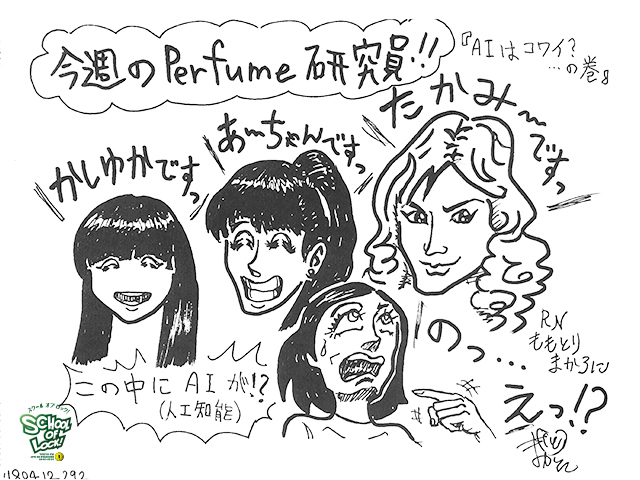 今週のPerfume研究員!!
『AIはコワイ?
…の巻』
かしゆかですっ
あ〜ちゃんですっ
たかみ〜ですっ
のっ…
えっ!?
この中にAIが!?
(人工知能)
RN
ももとり
まかろに
スクール オブ ロック!
SCHOOL
OF
LOCK!
1804-12-292